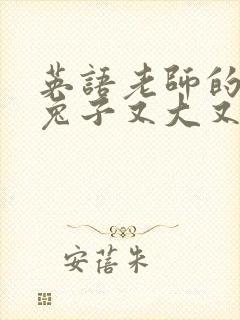 英語老師的
兔子又大又
安蓓朱